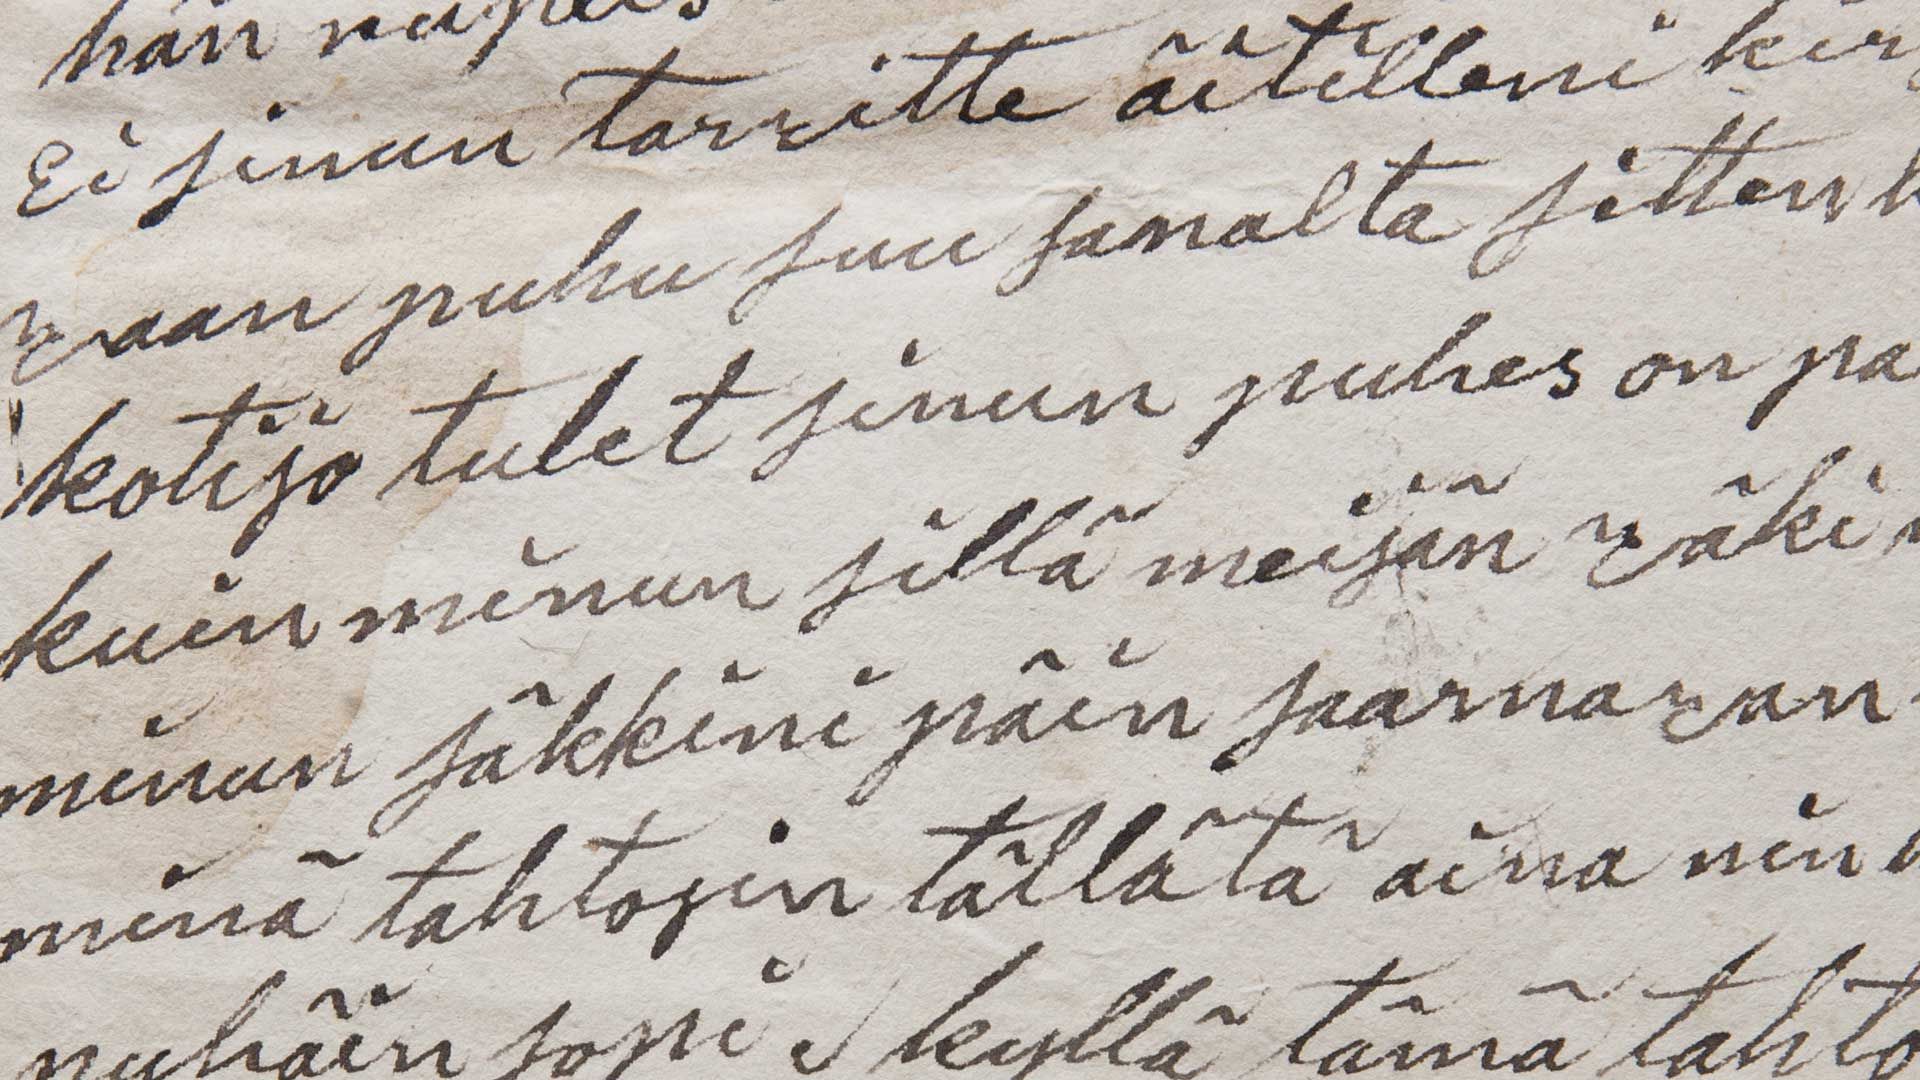 hän
Ei sinun tarvitte äitilleni kir
vaan puhu suu sanalta sitten k
kotijo tulet sinun puhes on pa
kuin minun sillä meijän väki
minun säkkini päin saarnavan
minä tahtosin tällätä aina nin
sopi kyllä tämä tahto